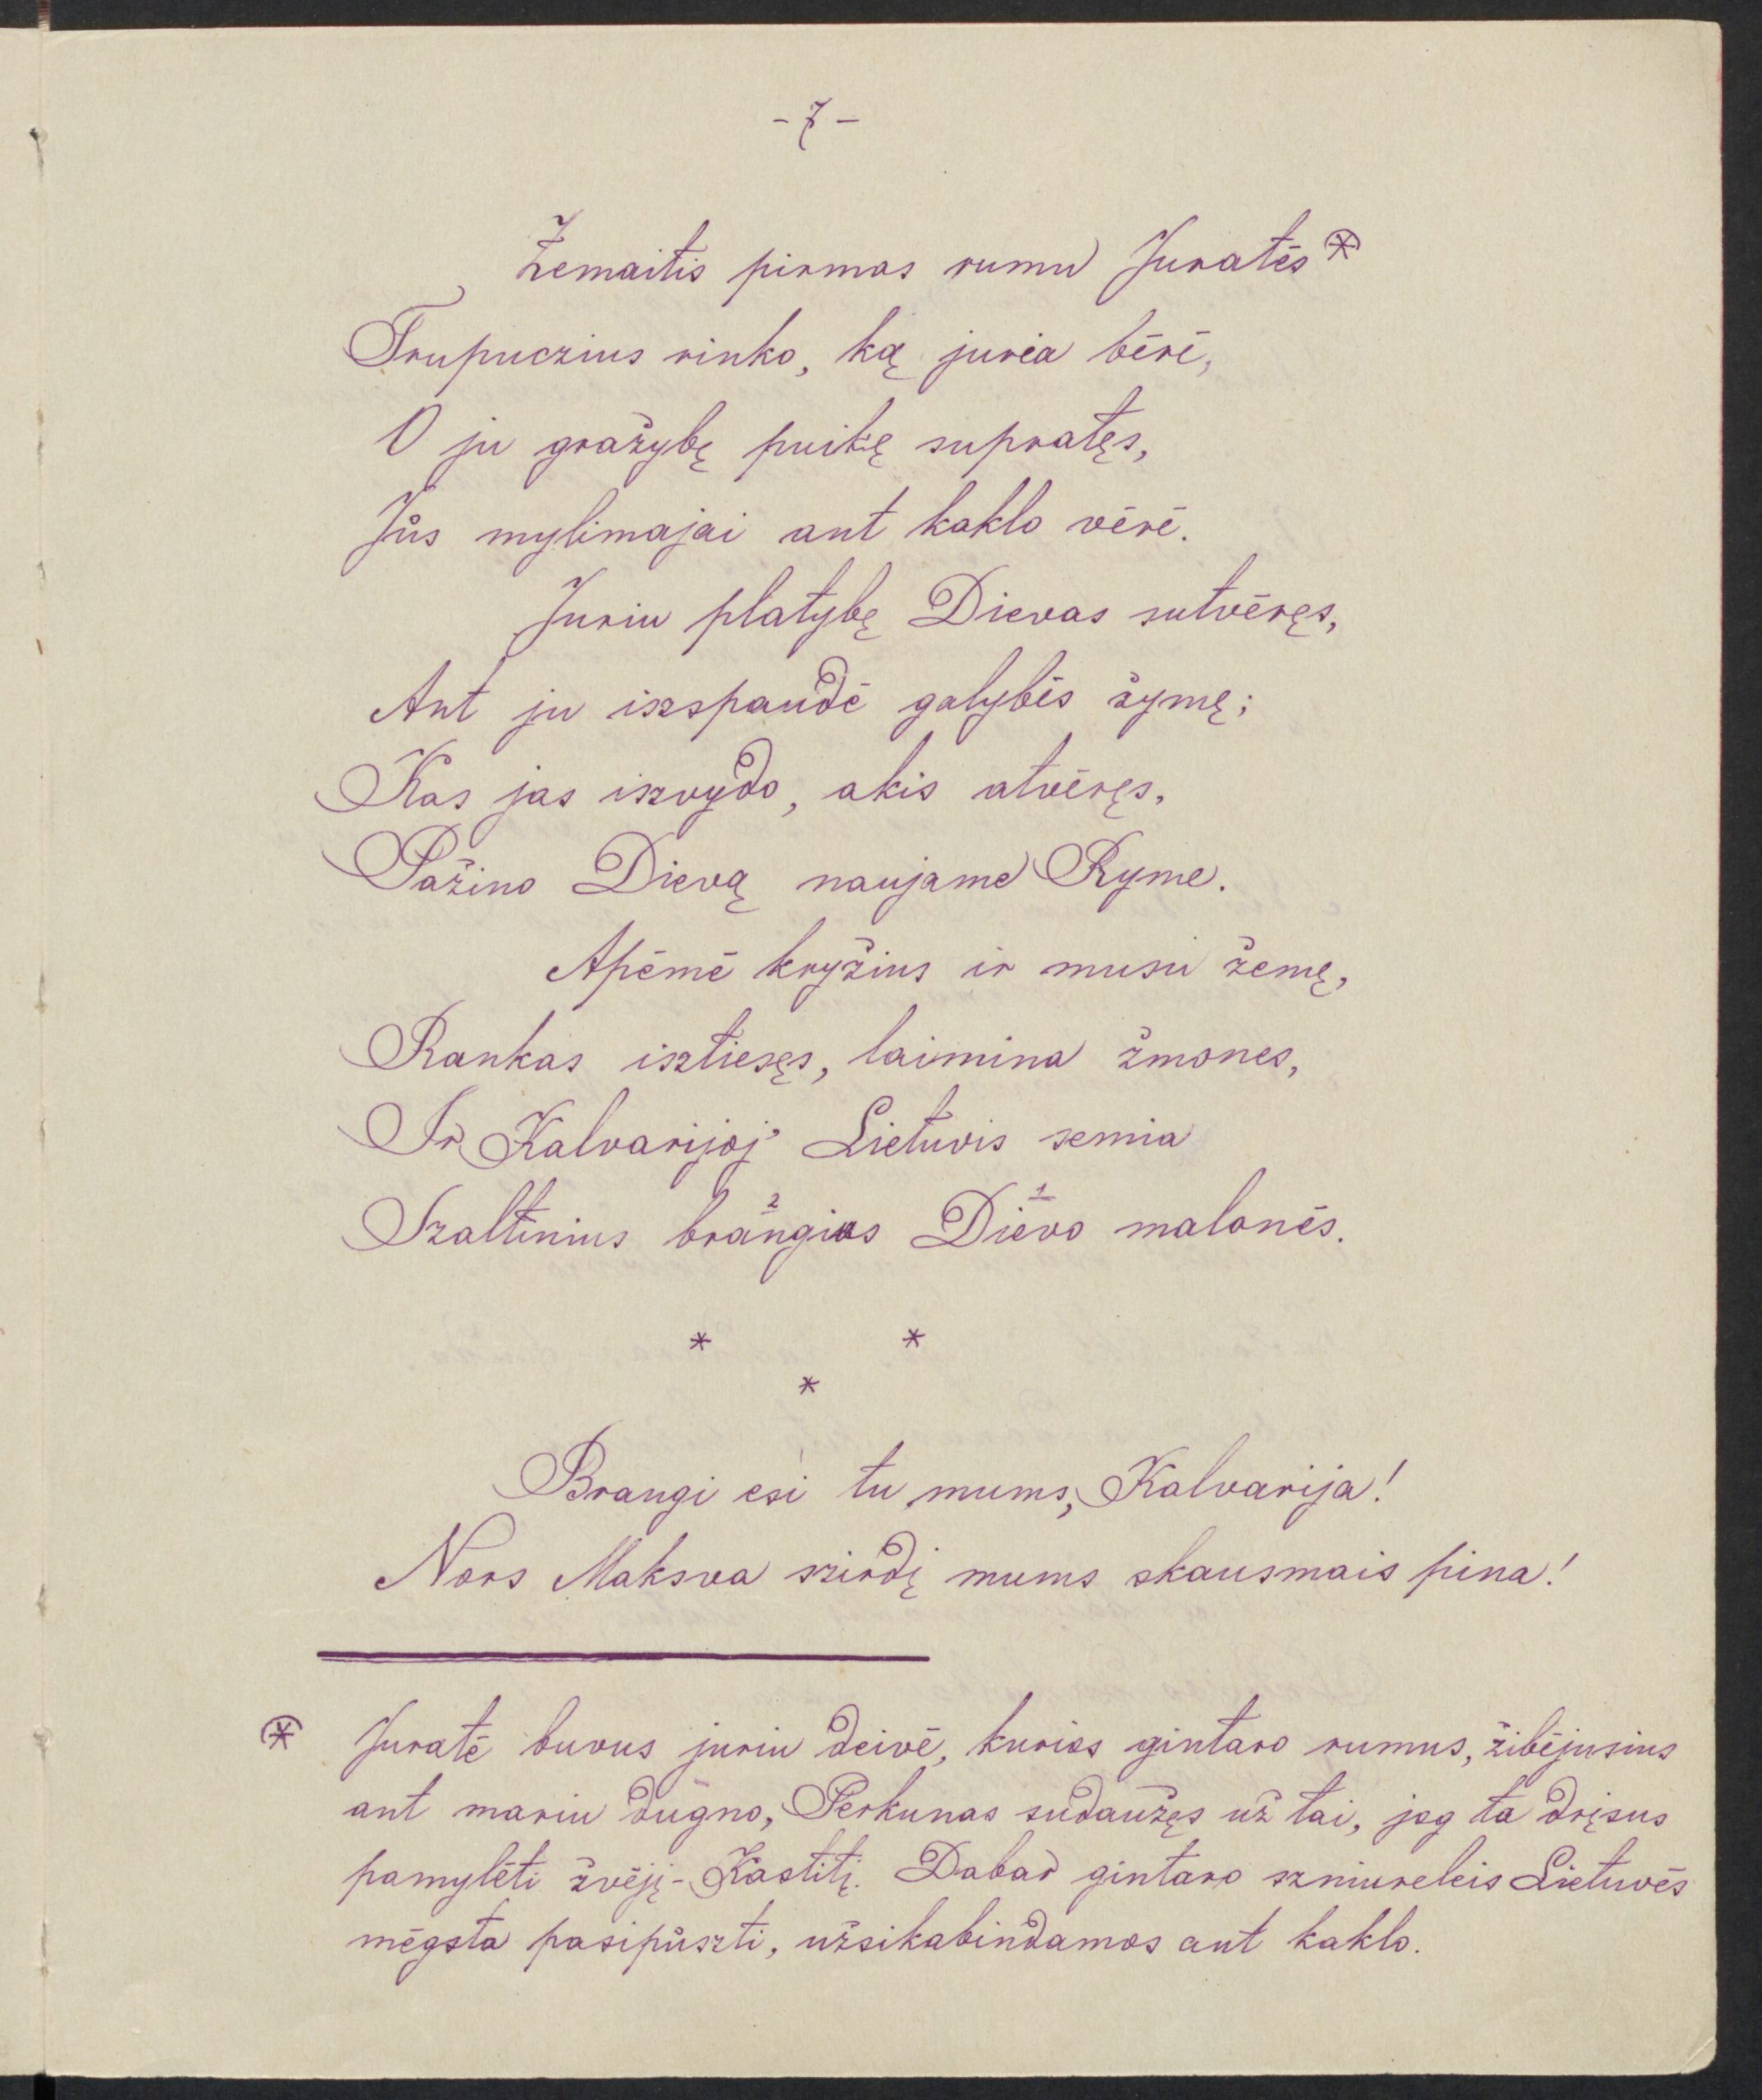 - 7 -
Žemaitis pirmas rumu Juratės ⊛
Trupuczius rinko, ką jurėa bėrė,
O ju gražybę puikę supratęs,
Jůs mylimajai ant kaklo vėrė.
Juriu platybę Dievas sutvėręs,
Ant ju iszspaudė galybės žymę;
Kas jas iszvydo, akis atvėręs,
Pažino Dievą naujame Ryme.
Apėmė kryžius ir musu žemę,
Rankas isztiesęs, laimina žmones,
Ir Kalvarijoj' Lietuvis semia
Szaltinius brangius 2 Dievo 1 malonės.
* *
*
Brangi esi tu mums, Kalvarija!
Nors Maksva szirdį mums skausmais pina!
⊛ Juratė buvus juriu deivė, kurios gintaro rumus, žibėjusius
ant mariu dugno, Perkunas sudaužęs už tai, jog ta dręsus
pamylėti žvėję-Kastitį. Dabar gintaro szniureleis Lietuvės
mėgsta pasipůszti, užsikabindamos ant kaklo.